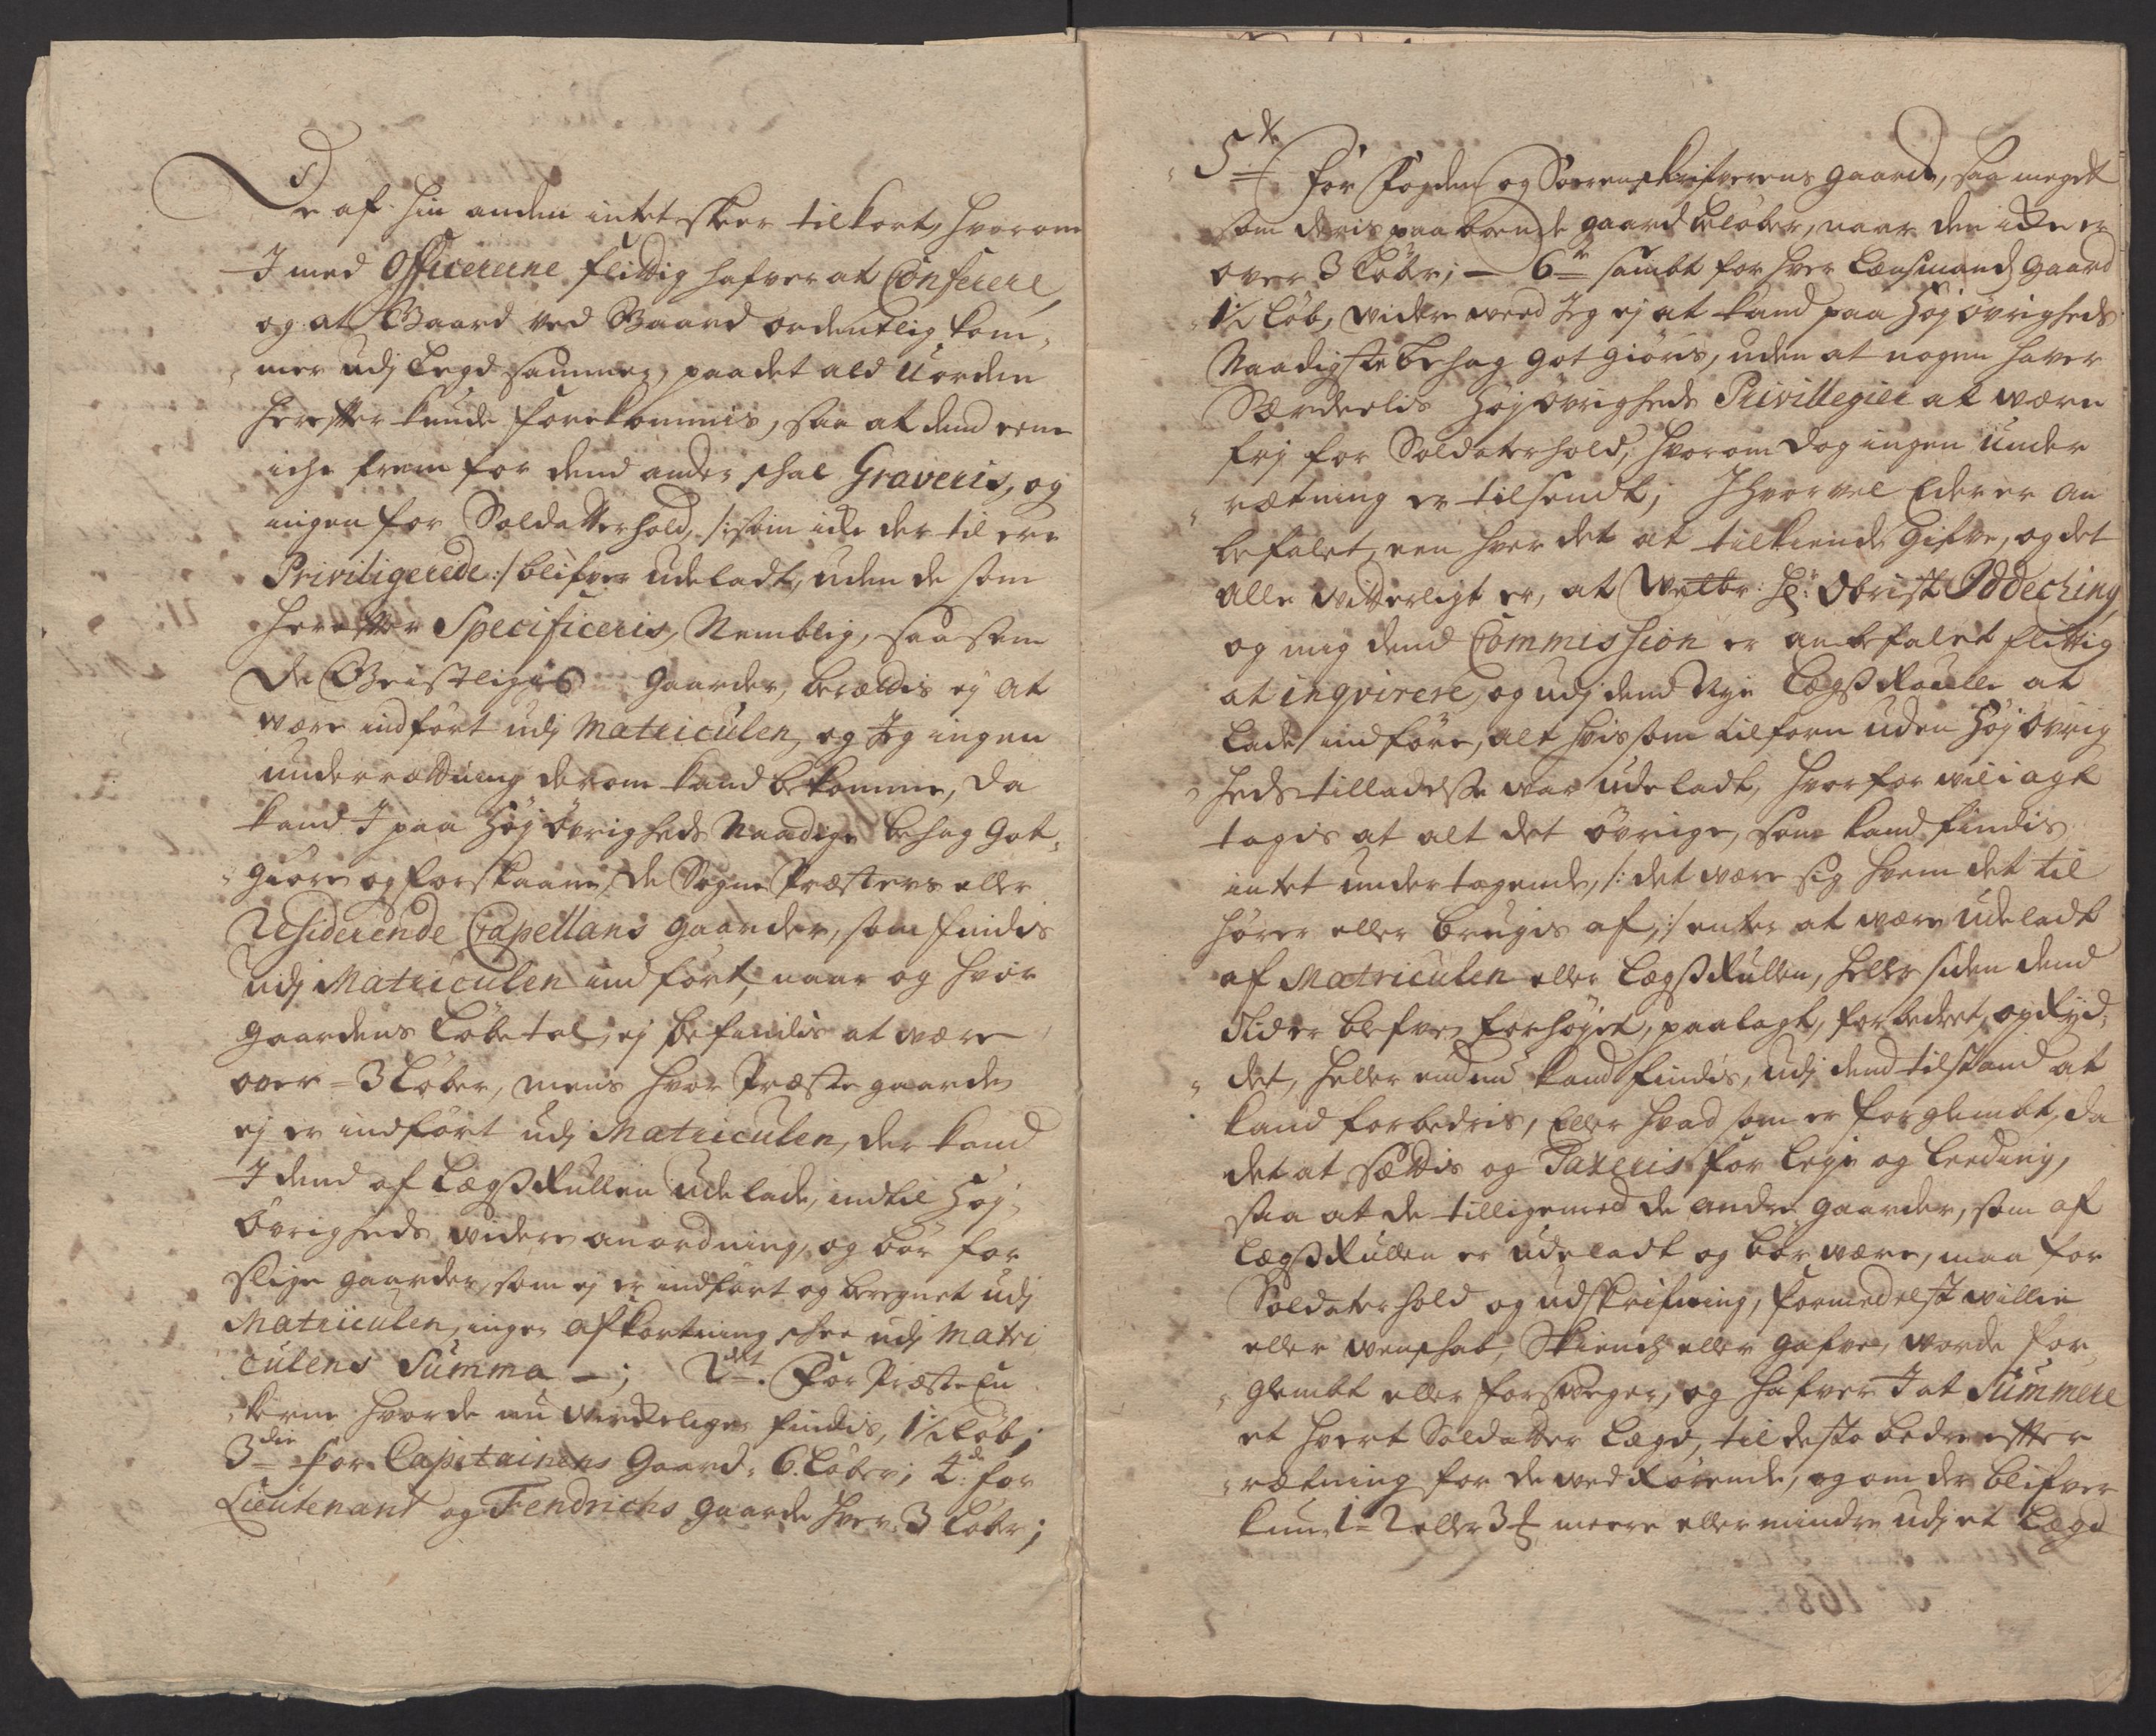 De af hin anden intet skeer tilkort, hvorom
I med Officererne flittig hafver at Conferere,
og at Gaard ved Gaard ordentlig kom¬
mer udj Legd sammen, paa det ald Uorden
herefter kunde forekommis, saa at dend eene
iche frem for dend anden skal Graveris, og
ingen for Soldatterhold, /: som icke der til ere
Priviligerede :/ blifver udeladt, uden de som
herefter Specificeris, Nemblig, saasom
De Geistligis gaarder, berættis ej at
være indført udj Matriculen, og Jeg ingen
underrættning derom kand bekomme, da
kand I paa Høj Øvrigheds Naadige behag Got¬
giøre og forskaane, de Sogne Præsters eller
Residerende Capellans gaarder, som findis
udj Matriculen indført, naar og hvor
gaardens Løbetal, ej befindis at være
over = 3 Løber, mens hvor Præste gaarde
ej er indført udj Matriculen, der kand
I dend af LægsRullen udelade, indtil Høj¬
Øvrigheds videre anordning, og bør for
slige gaarder, som ej er indført og beregnet udj
Matriculen, ingen afkortning skee udj Matri
culens Summa —; 2det. For Præste En
kerne hvor de nu virkeligen findis, 1½ Løb;
3die for Capitainens Gaard, 6. Løber; 4de for
Lieutenant og Fendrichs gaarde hver 3 Løber;
5te for Fogden og Sorenskrifverens gaarde, saa meget
som deris paaboende gaard beløber, naar den icke er
over 3 Løber; — 6te sambt for hver Lensmands gaard
1½ Løb, videre veed Jeg ej at kand paa Høj Øvrigheds
Naadigste behag got giøris, uden at nogen haver
Særdeelis Høj Øvrigheds Privillegier at være
frj for Soldaterhold, hvorom dog ingen under
rætning er tilsendt; Ihvorvel Eder er an
befalet, een hver det at tilkiende gifve, og det
alle vitterligt er, at Welbr: Hr: Obrist Oddeching
og mig dend Commission er anbefalet flittig
at inqvirere, og udj dend Nye LægsRoulle at
lade indføre, alt hvis som tilforn uden Høj Øvrig
heds tilladelsse var udeladt, hvorfor vil i agt
tagis at alt det øvrige, som kand findis
intet undertagende, /: det være sig hvem det til
hører eller brugis af, :/ enten at være udeladt
af Matriculen eller LægsRullen, heller siden dend
Tid er blefven forhøyet, paalagt, forbedret, opRyd¬
det, heller endnu kand findis, udj dend tilstand at
kand forbedris, Eller hvad som er forglembt, da
det at sættis og Taxeris for Leje og Leeding,
saa at de tilligemed de andre gaarder, som af
LægsRullen er udeladt og bør være, maa for
Soldaterhold og udskrifning, formedelst villie
eller venskab, Skienck eller gafver, vorde for
glembt eller forsveger, og hafver I at Summere
et hvert Soldatter Lægd, til desto bedre efter
rætning for de vedkørende, og om der blifver
kun 1 = 2 eller 3 meere eller mindre udj et Lægd